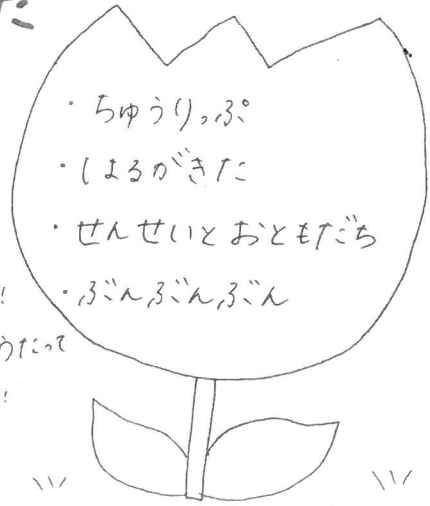 ・ちゅうりっぷ
・はるがきた
・せんせいとおともだち
!
・ぶんぶんぶん
うたって
!